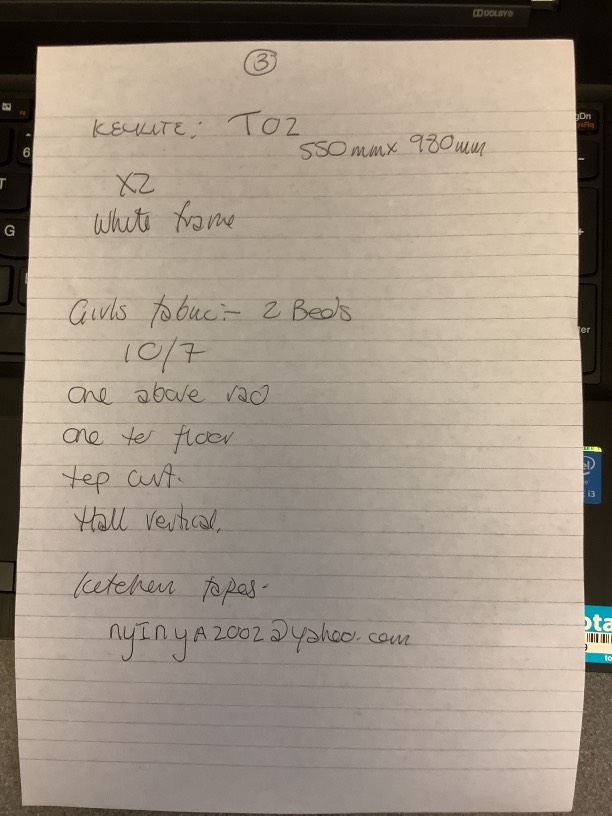 DOLBY
3
KEYLITE: T02
550mm x 980mm
X2
White frame
Girls fabric:- 2 Beds
10/7
one above rad
one to floor
top curt.
Hall vertical.
Ketchen tapes-
nyInyA2002@yahoo.com
6
T
G
i3